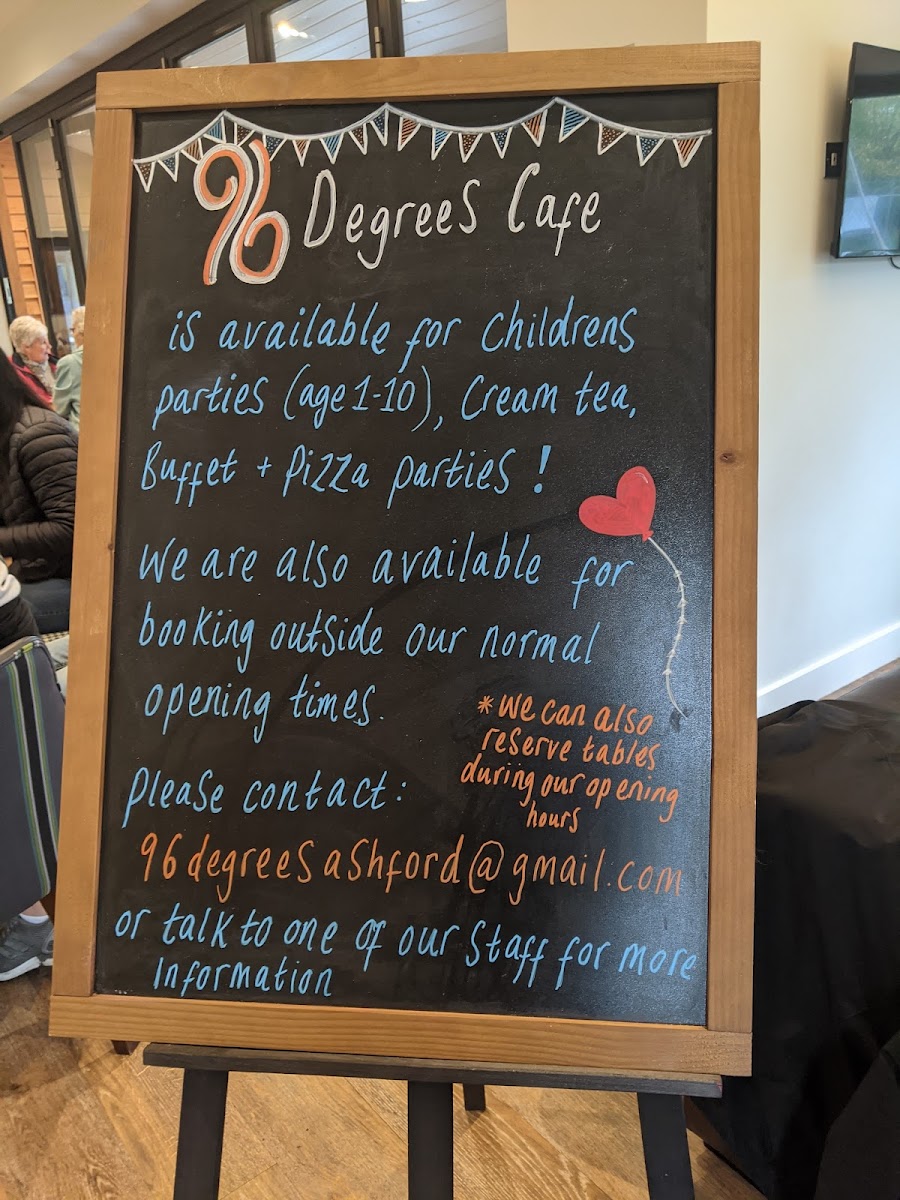 96 Degrees Cafe
is available for childrens
parties (age 1-10), Cream tea,
Buffet + Pizza parties !
We are also available for
booking outside our normal
opening times.
*We can also
reserve tables
during our opening
hours
Please contact:
96degreesashford@gmail.com
or talk to one of our staff for more
Information